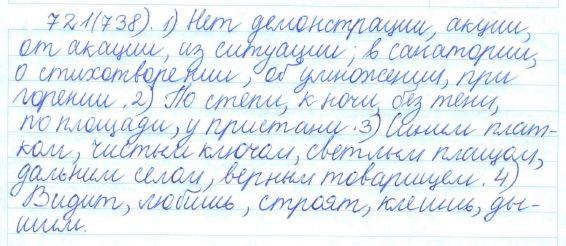 721(738). 1) Нет демонстрации, акции,
от акации, из ситуации; в санатории,
о стихотворении, об умножении, при
горении. 2) По степи, к ночи, без тени,
по площади, у пристани. 3) Синим плат-
ком, чистым ключом, светлым плащом,
дальним селом, верным товарищем. 4)
Видит, любишь, строят, клеишь, ды-
шим.